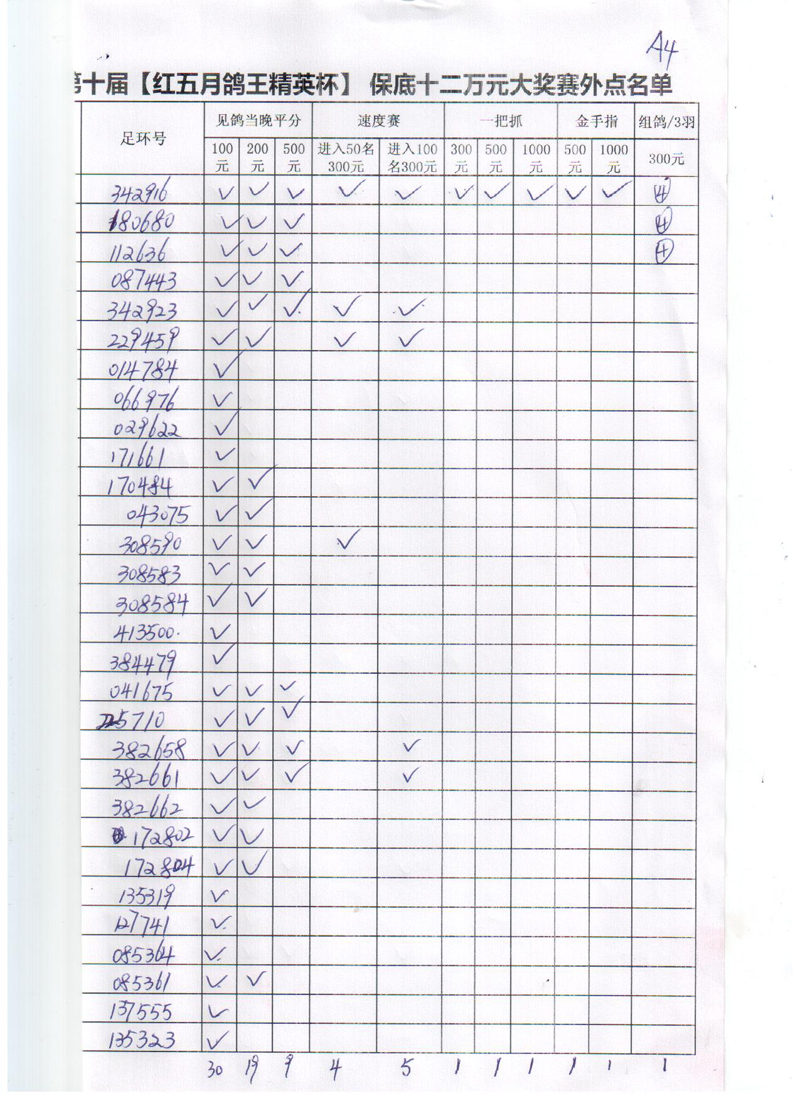 A4
第十届【红五月鸽王精英杯】 保底十二万元大奖赛外点名单
足环号 见鸽当晚平分 速度赛 一把抓 金手指 组鸽/3羽
100元 200元 500元 进入50名300元 进入100名300元 300元 500元 1000元 500元 1000元 300元
342916 ✓ ✓ ✓ ✓ ✓ ✓ ✓ ✓ ✓ ✓ ④
180680 ✓ ✓ ✓ ④
112636 ✓ ✓ ✓ ④
087443 ✓ ✓ ✓
342923 ✓ ✓ ✓ ✓ ✓
229459 ✓ ✓ ✓ ✓
014784 ✓
066976 ✓
029622 ✓
171661 ✓
170484 ✓ ✓
043075 ✓ ✓
308590 ✓ ✓ ✓
308583 ✓ ✓
308584 ✓ ✓
413500 ✓
384479 ✓
041675 ✓ ✓ ✓
225710 ✓ ✓ ✓
382658 ✓ ✓ ✓ ✓
382661 ✓ ✓ ✓ ✓
382662 ✓ ✓
172802 ✓ ✓
172804 ✓ ✓
135319 ✓
127741 ✓
085364 ✓
085361 ✓ ✓
137555 ✓
135323 ✓
30 19 9 4 5 1 1 1 1 1 1